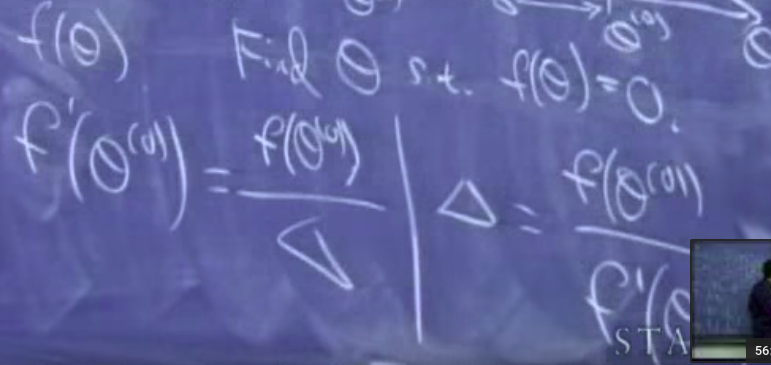 θ⁽⁰⁾
f(θ) Find θ s.t. f(θ)=0.
f'(θ⁽⁰⁾) = f(θ⁽⁰⁾) / Δ | Δ = f(θ⁽⁰⁾) / f'(θ
STA
56: